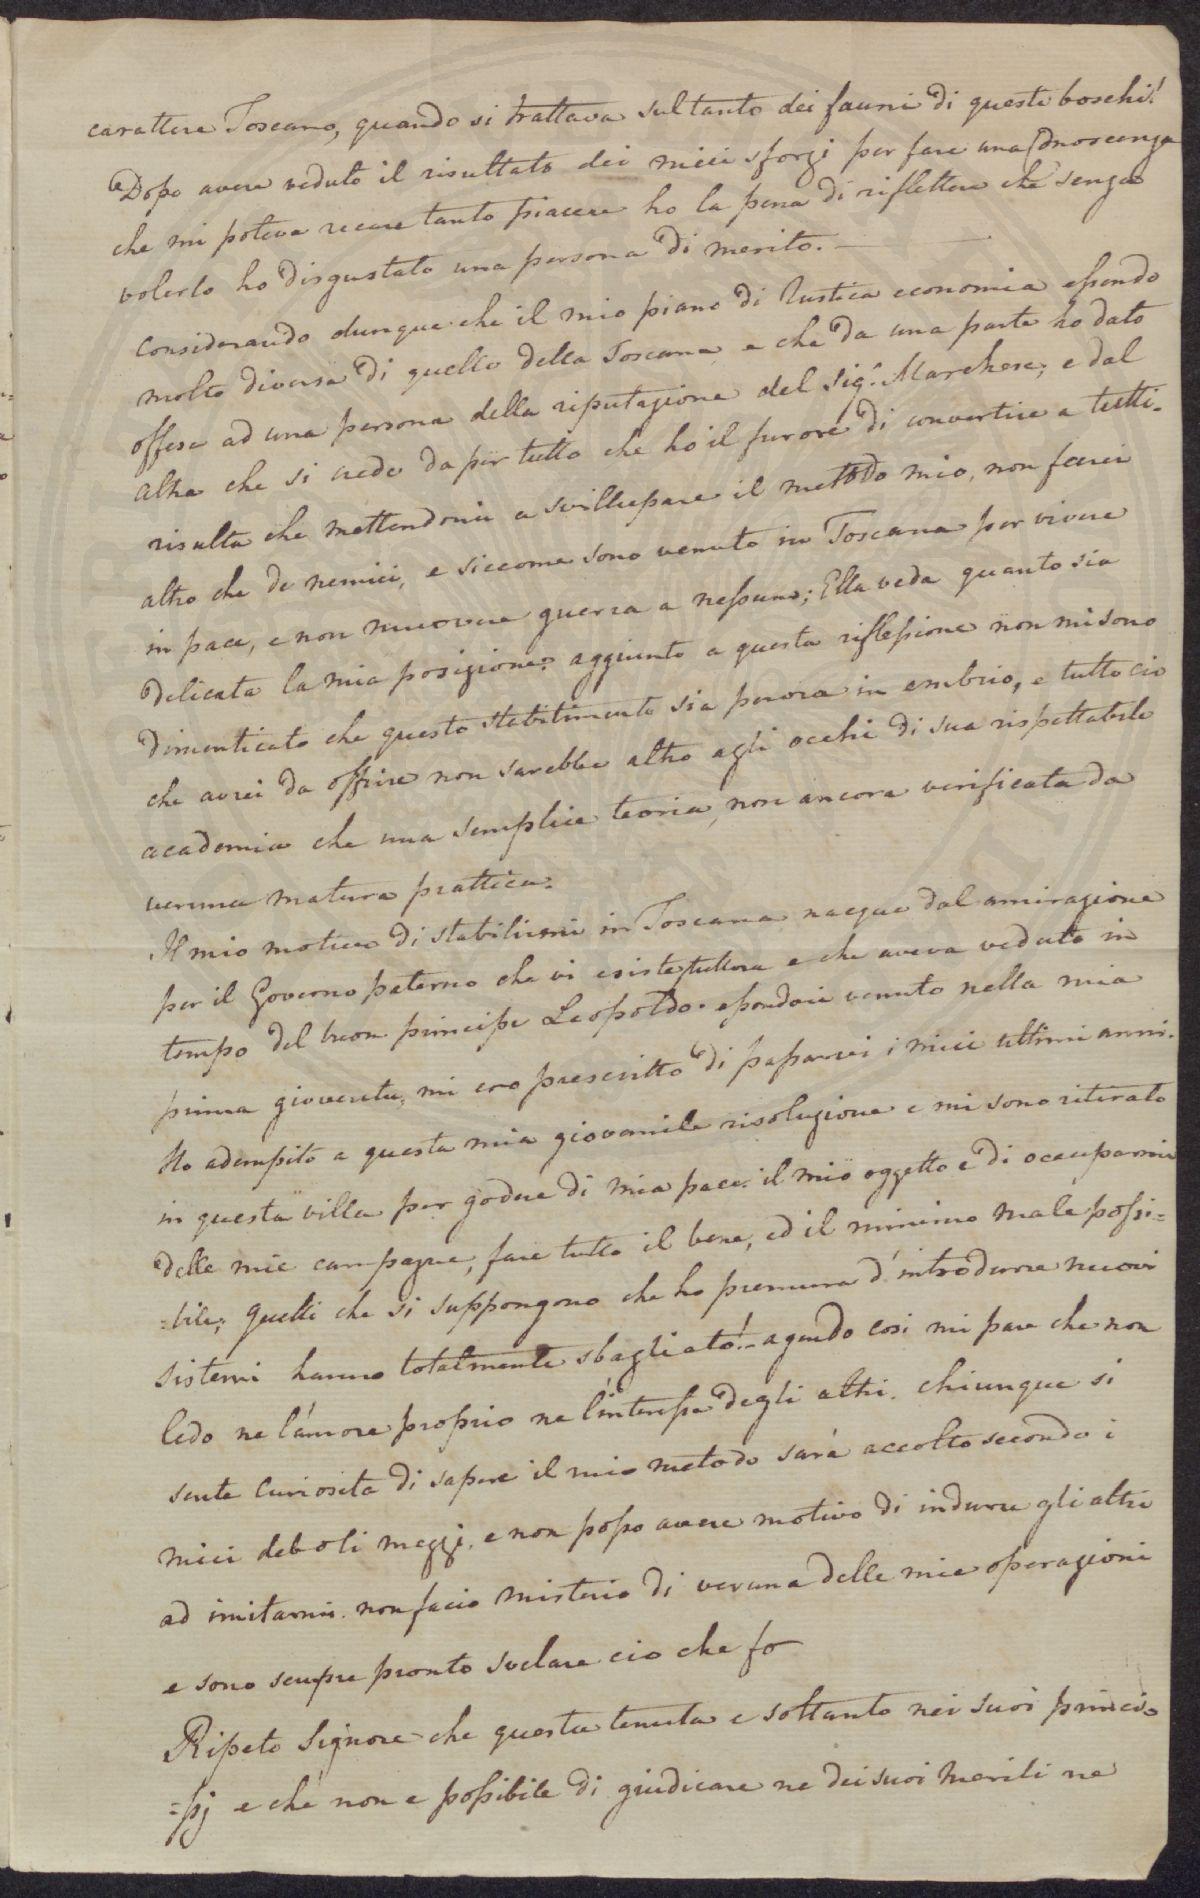 carattere Toscano, quando si trattava sultanto dei fauni di questi boschi!
Dopo avere veduto il risultato dei miei sforzi per fare una Conoscenza
che mi poteva recare tanto piacere ho la pena di riflettere che senza
volerlo ho disgustato una persona di merito. —
Considerando dunque che il mio piano di Rustica economia essendo
molto diversa di quello della Toscana e che da una parte ho dato
offesa ad una persona della riputazione del Sig.r Marchese; e dal
altra che si crede da per tutto che ho il furore di convertire a tutti.
risulta che mettendomi a svilluppare il mettodo mio, non farei
altro che de nemici, e siccome sono venuto in Toscana per vivere
in pace, e non muovere guerra a nessuno; Ella veda quanto sia
delicata la mia posizione: aggiunto a questa riflessione non mi sono
dimenticato che questo stabilimento sia perora in embrio, e tutto cio
che avrei da offrire non sarebbe altro agli occhi di sua rispettabile
academia che una semplice teoria, non ancora verificata da
veruna matura prattica.
Il mio motivo di stabilirmi in Toscana nacque dal amirazione
per il Governo paterno che vi esiste tuttora e che aveva veduto in
tempo del buon principe Leopoldo. essendoci venuto nella mia
prima gioventu, mi ero prescritto di passarvi i miei ultimi anni.
Ho adempito a questa mia giovanile risoluzione e mi sono ritirato
in questa villa per godere di mia pace. il mio oggetto e di occuparmi
delle mie campagne, fare tutto il bene, ed il minimo male possi=
=bile; quelli che si suppongono che ho premura d'introdurre nuovi
sistemi hanno totalmente sbagliato!- agendo cosi mi pare che non
ledo ne l'amore proprio ne l'interesse degli altri. chiunque si
sente Curiosita di sapere il mio metodo sará accolto secondo i
miei deboli mezzi, e non posso avere motivo di indurre gli altri
ad imitarmi. non facio misterio di veruna delle mie operazioni
e sono sempre pronto svelare cio che fo
Ripeto Signore che questa tenuta e soltanto nei suoi princi=
=pj e che non e possibile di giudicare ne dei suoi meriti ne